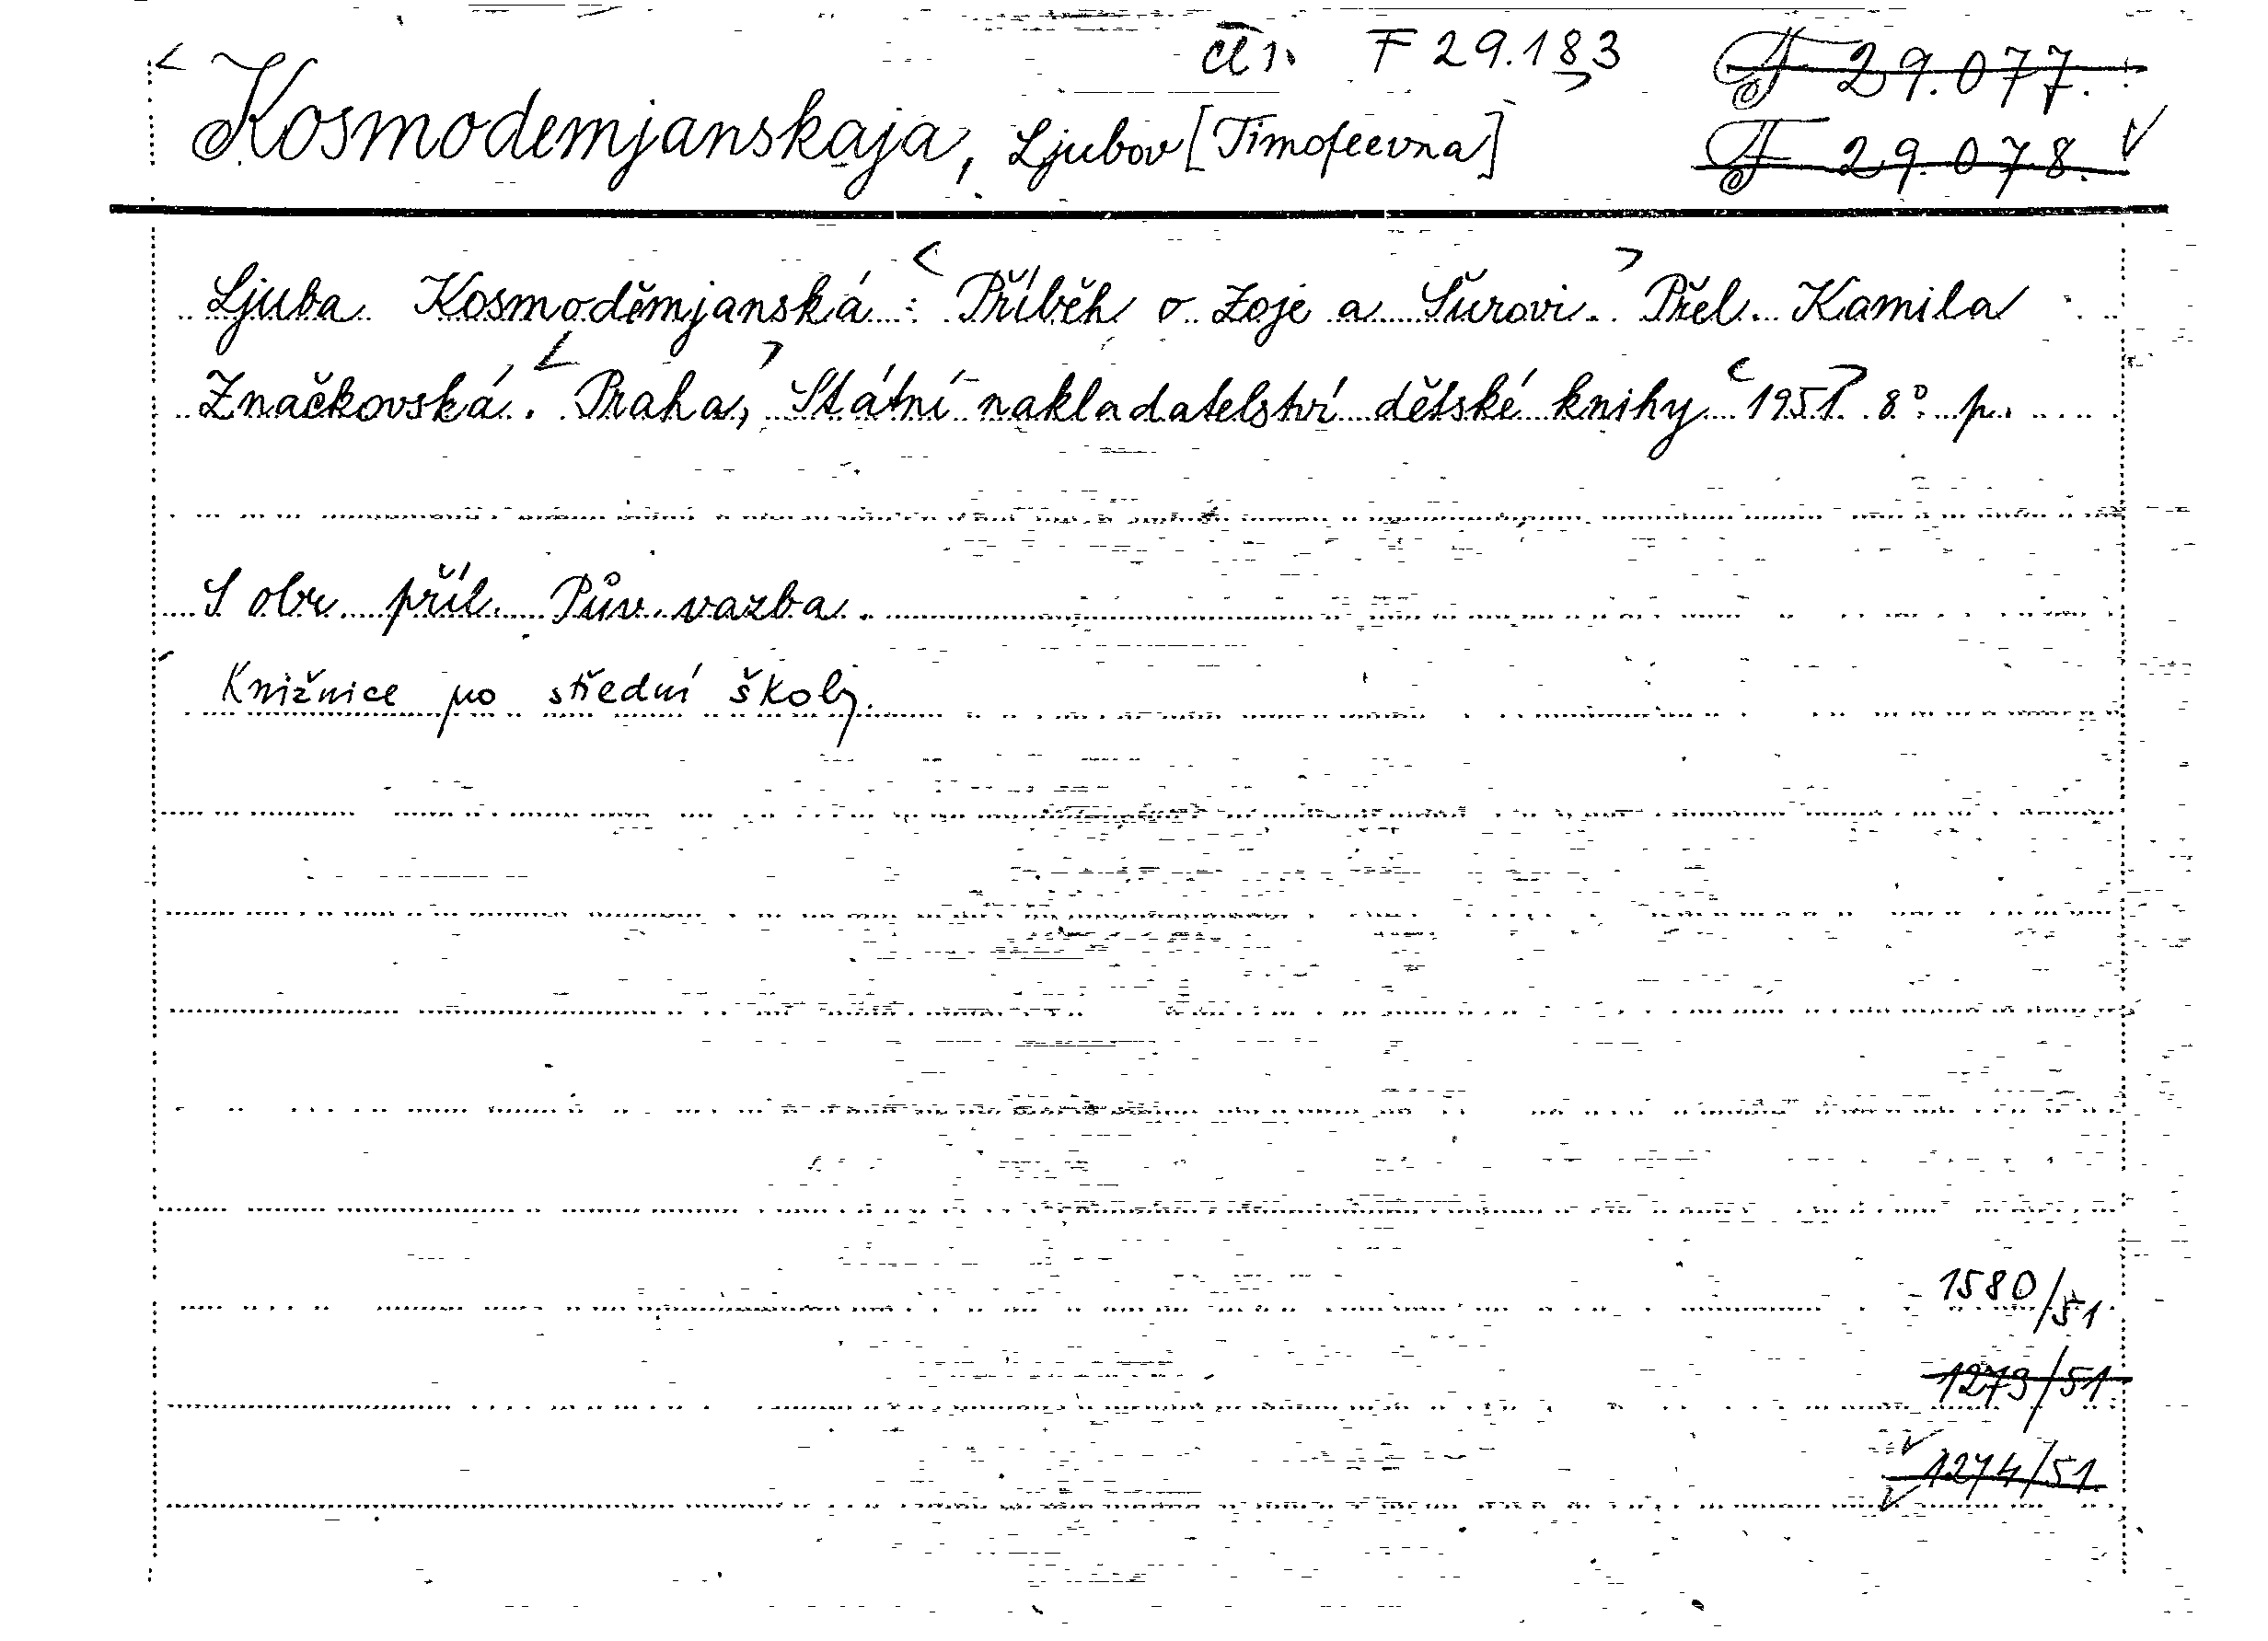 F 29.183 F 29.077.
Kosmodemjanskaja, Ljubov [Timofeevna] F 29.078.
Ljuba Kosmoděmjanská: Příběh o Zoje a Šurovi. Přel. Kamila
Značkovská. Praha, Státní nakladatelství dětské knihy 1951. 8° p.
S obr. příl. Pův. vazba.
Knižnice po střední školy.
1580/51
1273/51.
1274/51.